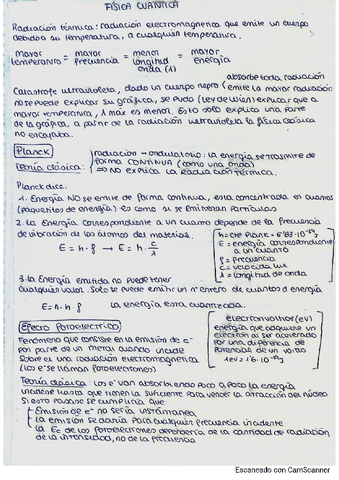 FÍSICA CUÁNTICA
Radiación térmica: radiación electromagnética que emite un cuerpo
debido su temperatura, a cualquier temperatura.
mayor = mayor = menor = mayor
temperatura frecuencia longitud energía
onda (λ)
absorbe toda radiación
Catástrofe ultravioleta, dado un cuerpo negro (emite la mayor radiación
no se puede explicar su gráfica, se pudo (ley de Wien) explicar que a
mayor temperatura, λ max es menor. Esto solo explica una parte
de la gráfica, a partir de la radiación ultravioleta la física clásica
no encajaba.
Planck
Teoría clásica:
radiación → ondulatorio: la energía se trasmite de
forma CONTINUA (como una onda)
⇒ No explica la radiación térmica.
Planck dice:
1. Energía NO se emite de forma continua, esta concentrada en cuantos
(paquetes de energía) es como si se emitieran partículas
2. La Energía correspondiente a un cuanto depende de la frecuencia
de vibración de los átomos del material.
E = h · f → E = h · c/λ
h = cte Planck = 6'63·10⁻³⁴
E = energía correspondiente
a un cuanto
f = frecuencia
c = velocidad luz
λ = longitud de onda
3. la Energía emitida no puede tener
cualquier valor. Solo se puede emitir un nº entero de cuantos d energía
E = n · h · f La energía esta cuantizada.
Efecto Fotoeléctrico
Fenómeno que consiste en la emisión de e⁻
por parte de un metal cuando incide
sobre el una radiación electromagnética
(los e⁻ se llaman fotoelectrones)
electronvoltio (eV)
energía que adquiere un
electrón al ser acelerado
por una diferencia de
potencial de un voltio
1eV = 1'6·10⁻¹⁹ J
Teoría clásica: los e⁻ van absorbiendo poco a poco la energía
incidente hasta que tienen la suficiente para vencer la atracción del núcleo
Si esto pasase se cumpliría que
Emisión de e⁻ no sería instantánea
La emisión se daría para cualquier frecuencia incidente
La Ec de los fotoelectrones dependería de la cantidad de radiación,
de la intensidad, no de la frecuencia.
Escaneado con CamScanner